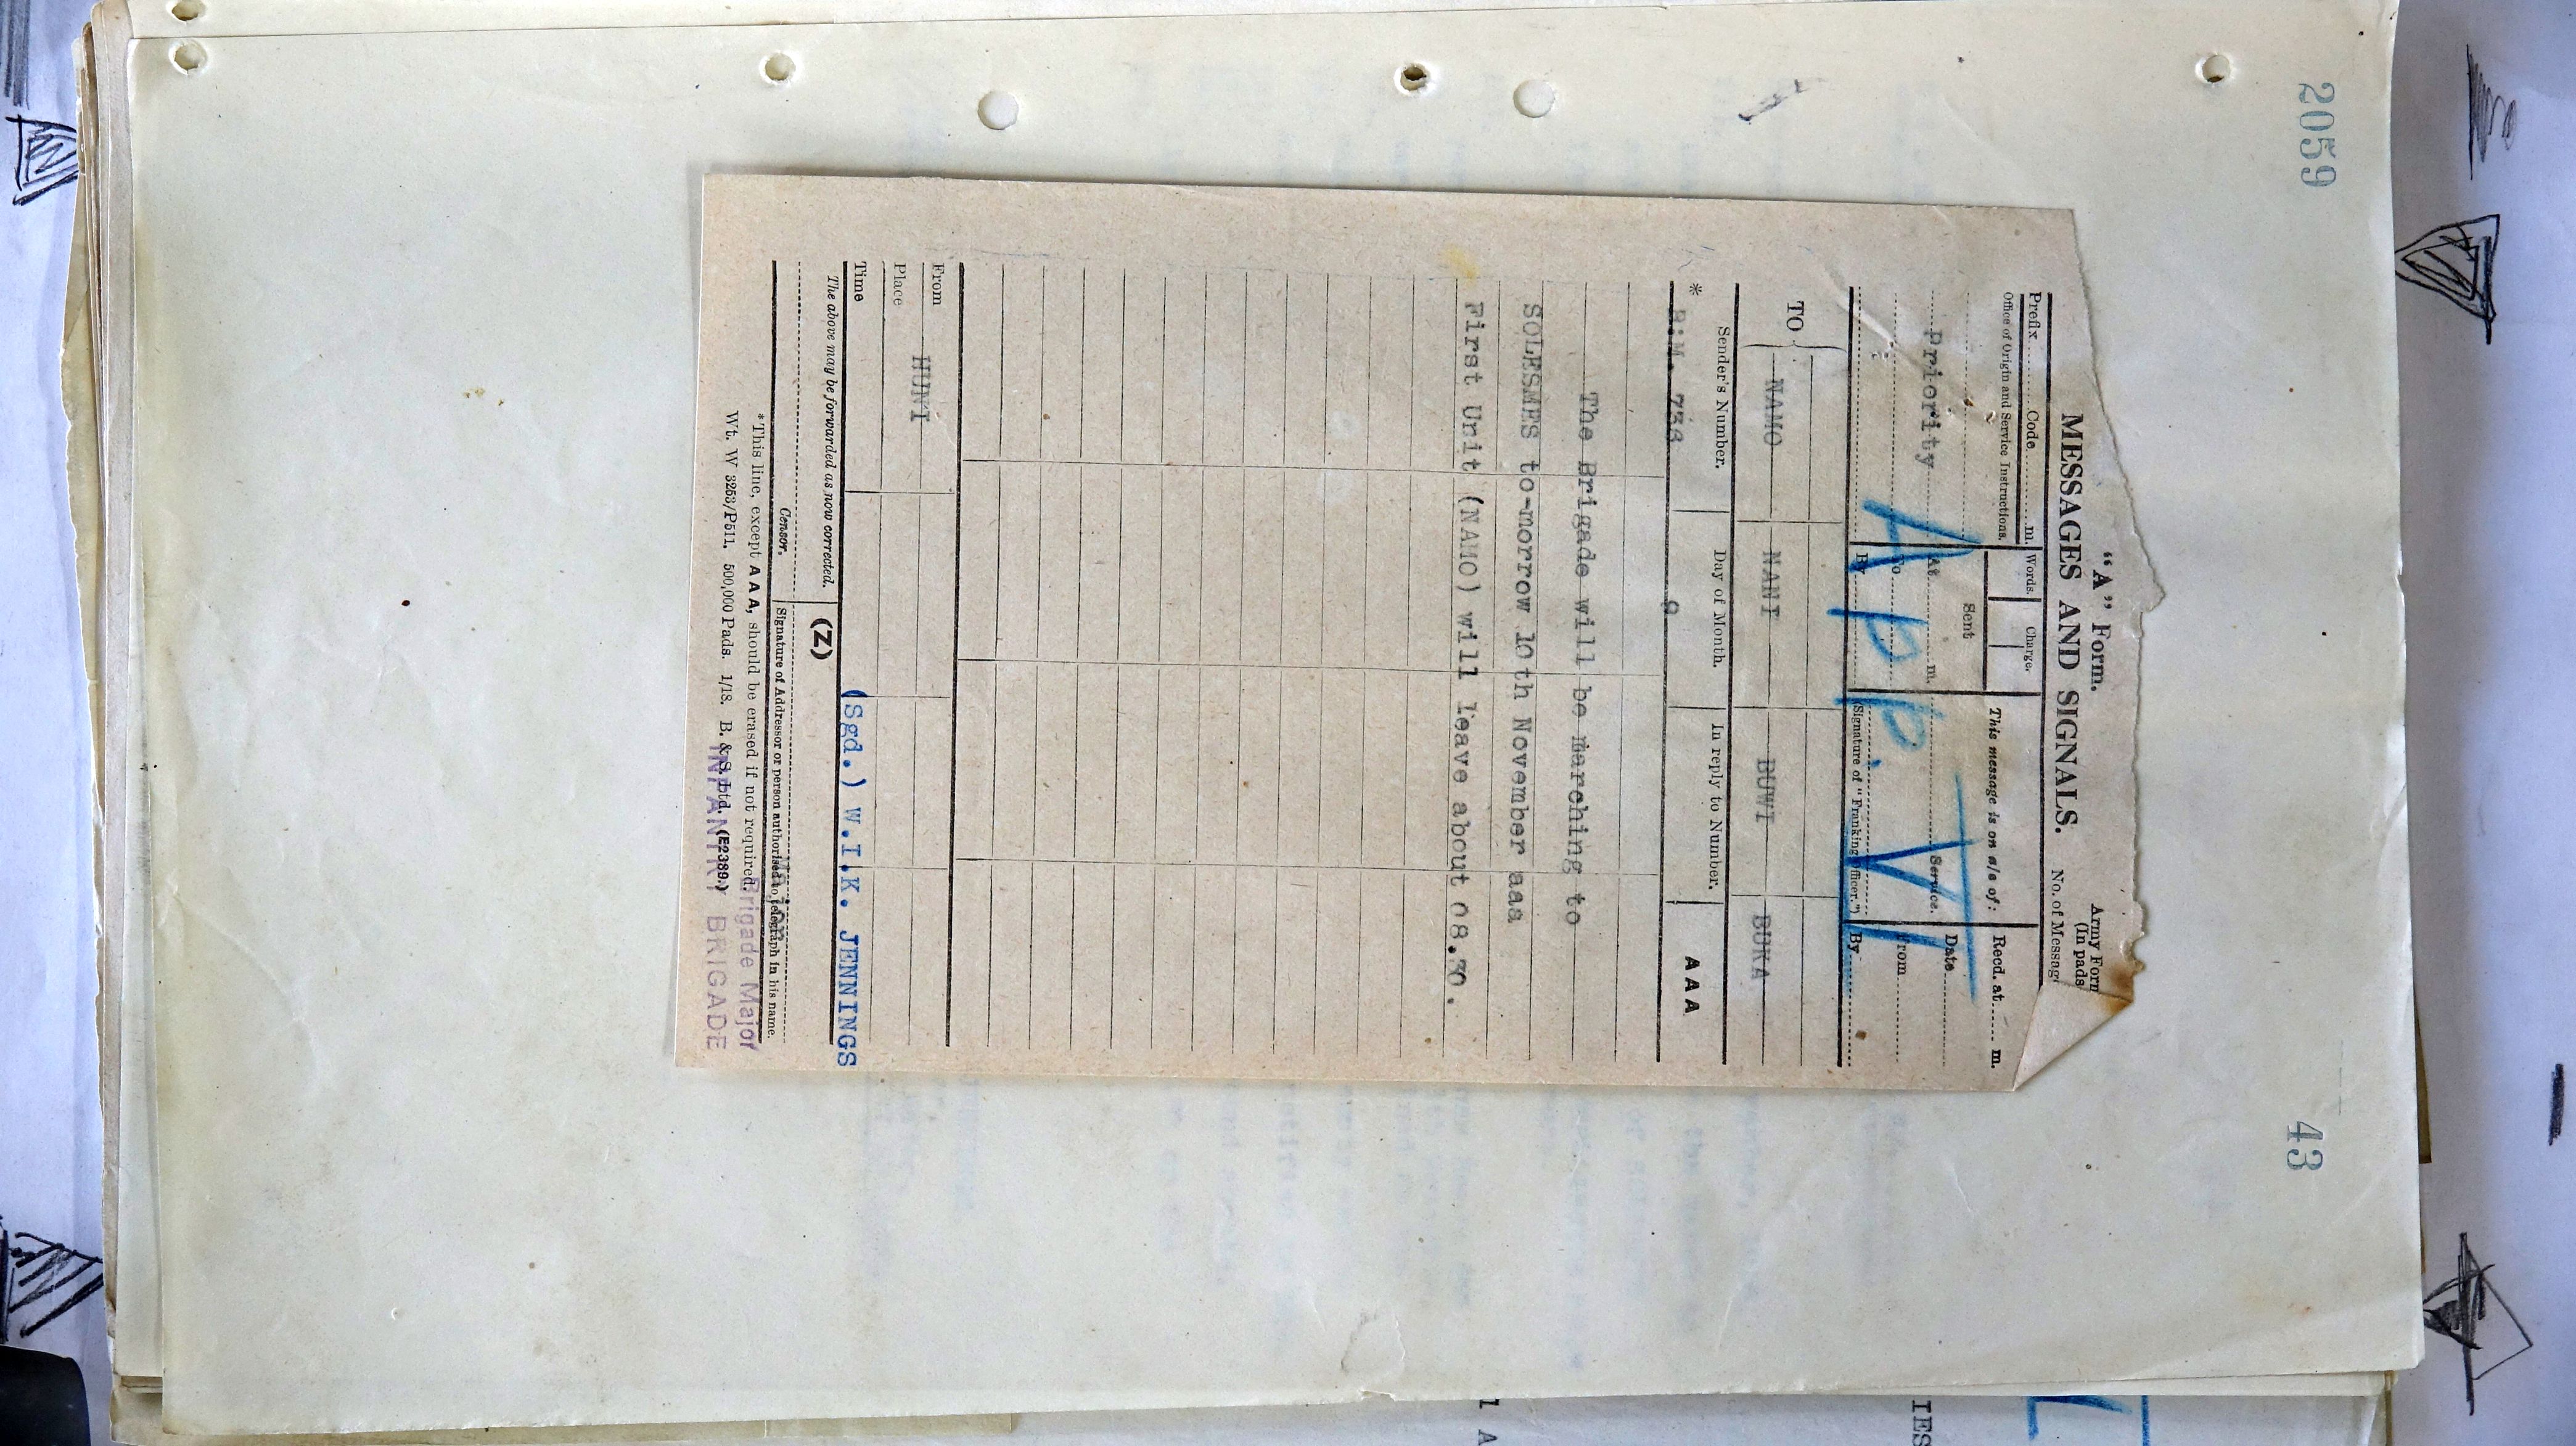 2059
43
"A" Form.
Army Form
MESSAGES AND SIGNALS.
(In pads
No. of Message
Prefix Code m.
Words.
Charge.
This message is on a/c of:
Recd. at m.
Office of Origin and Service Instructions.
Sent
Date
Priority
At m.
Service.
From
To
By
(Signature of "Franking Officer.")
By
App. VI
TO
NAMO
NANI
BUWI
BUKA
Sender's Number.
Day of Month.
In reply to Number.
AAA
* B.M. 738
9
The Brigade will be marching to
SOLESMES to-morrow 10th November aaa
First Unit (NAMO) will leave about 08.30.
From
HUNI
Place
Time
(Sgd.) W.I.K. JENNINGS
The above may be forwarded as now corrected.
(Z)
Censor.
Signature of Addressor or person authorised to telegraph in his name.
Major
*This line, except A A A, should be erased if not required.
Brigade Major
Wt. W 3253/P511. 500,000 Pads. 1/18. B. & S. Ltd. (E2389.)
INFANTRY BRIGADE
IES
1 A